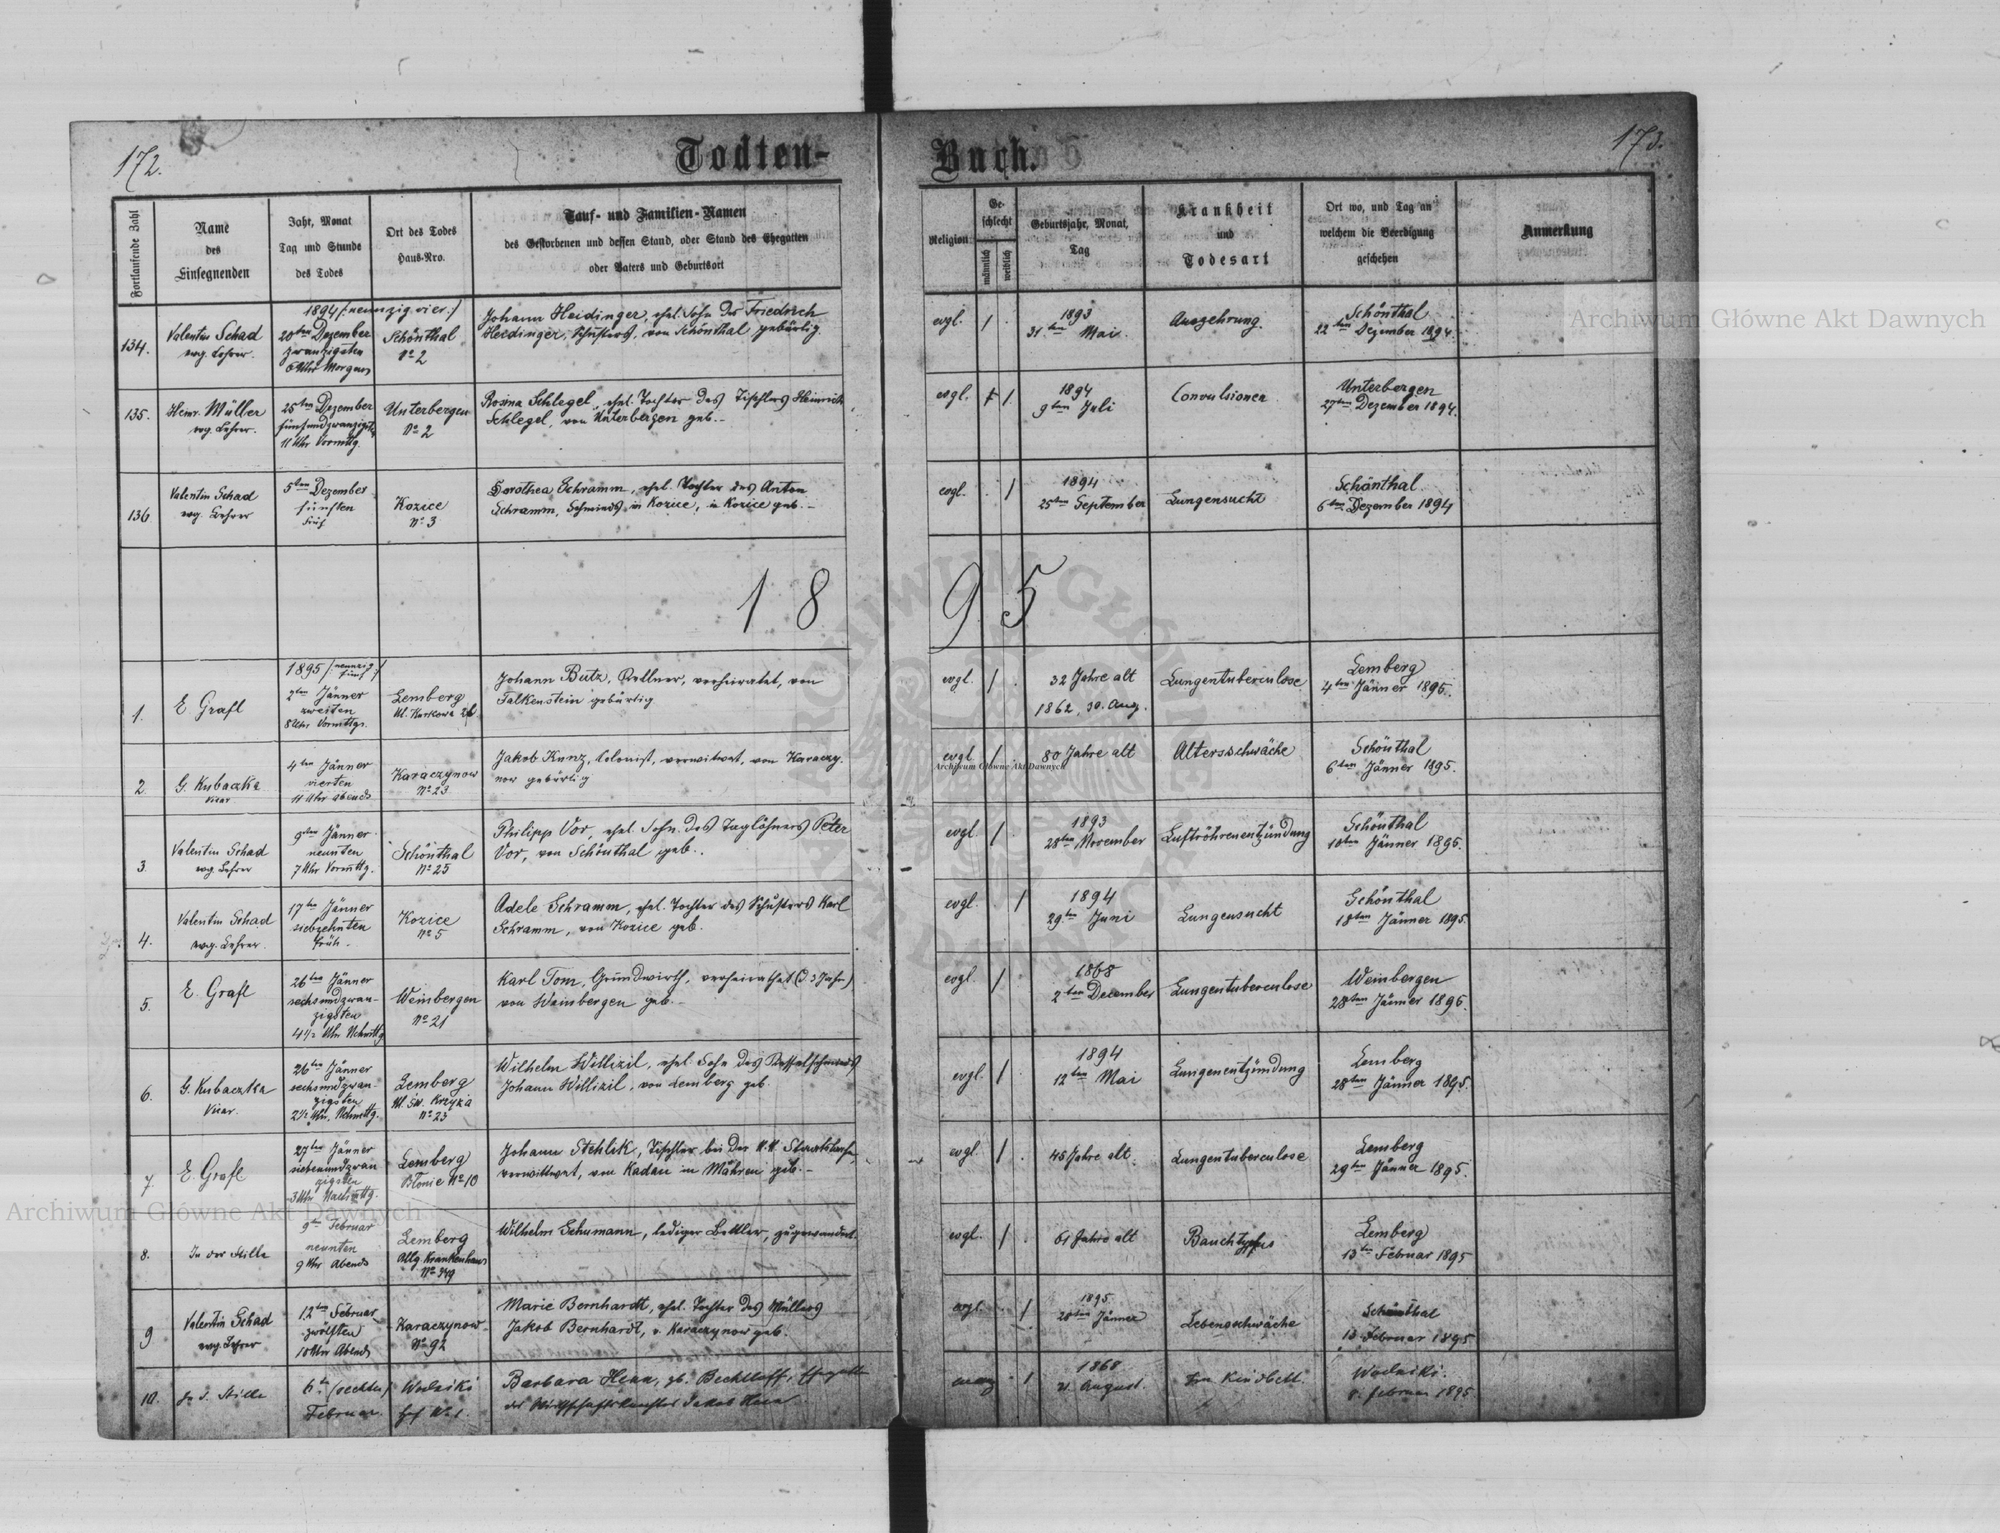 172.
Todten-
Buch.
173.
Fortlaufende Zahl
Name
des
Einsegnenden
Jahr, Monat
Tag und Stunde
des Todes
Ort des Todes
Haus-Nro.
Tauf- und Familien-Namen
des Gestorbenen und dessen Stand, oder Stand des Ehegatten
oder Vaters und Geburtsort
Religion
Ge-
schlecht
männlich
weiblich
Geburtsjahr, Monat,
Tag
Krankheit
und
Todesart
Ort wo, und Tag an
welchem die Beerdigung
geschehen
Anmerkung
134.
Valentin Schad
evg. Lehrer.
1894 /: neunzig vier :/
20ten Dezember
zwanzigsten
6 Uhr Morgens
Schönthal
No 2
Johann Heidinger, ehel. Sohn des Friedrich
Heidinger, Schusters, von Schönthal gebürtig
evgl.
/
1893
31ten Mai.
Auszehrung.
Schönthal
22ten Dezember 1894.
135.
Heinr. Müller
evg. Lehrer.
25ten Dezember
11 Uhr Vormttg.
Unterbergen
No 2
Rosina Schlegel, ehel. Tochter des Tischlers Heinrich
Schlegel, von Unterbergen geb. -
evgl.
/
1894
9ten Juli
Convulsionen
Unterbergen
27ten Dezember 1894.
136
Valentin Schad
evg. Lehrer
5ten Dezember
fünften
früh
Kozice
No 3
Dorothea Schramm, ehel. Tochter des Anton
Schramm, Schmieds in Kozice, in Kozice geb. -
evgl.
/
1894
25ten September
Lungensucht
Schönthal
6ten Dezember 1894
1 8 9 5
1.
E Grafl
1895 /: neunzig fünf :/
2ten Jänner
zweiten
8 Uhr Vormttgs.
Lemberg
Johann Butz, Kellner, verheiratet, von
Falkenstein gebürtig
evgl.
/
32 Jahre alt
1862, 30. Aug.
Lungentuberculose
Lemberg
4ten Jänner 1895.
2.
G. Kubaczka
Vicar
4ten Jänner
vierten
11 Uhr abends
Karaczynow
No 23
Jakob Kunz, Colonist, verwitwet, von Karaczy-
now gebürtig
evgl.
/
80 Jahre alt
Altersschwäche
Schönthal
6ten Jänner 1895.
3.
Valentin Schad
evg. Lehrer
9ten Jänner
neunten
7 Uhr Vormttg.
Schönthal
No 25
Philipp Vor, ehel. Sohn des Taglöhners Peter
Vor, von Schönthal geb..
evgl.
/
1893
28ten November
Luftröhrenentzündung
Schönthal
10ten Jänner 1895.
4.
Valentin Schad
evg. Lehrer.
17ten Jänner
siebzehnten
früh.
Kozice
No 5
Adele Schramm, ehel. Tochter des Schusters Karl
Schramm, von Kozice geb.
evgl.
/
1894
29ten Juni
Lungensucht
Schönthal
18ten Jänner 1895.
5.
E. Grafl
26ten Jänner
sechsundzwan-
zigsten
4 1/2 Uhr Nchmttg
Weinbergen
No 21
Karl Tom, Grundwirth, verheirathet
von Weinbergen geb. -
evgl.
/
1868
2ten December
Lungentuberculose
Weinbergen
28ten Jänner 1895.
6.
G. Kubaczka
Vicar.
26ten Jänner
sechsundzwan-
zigsten
2 1/2 Uhr, Nchmttg.
Lemberg
Ul. Św. Krzyża
No 23
Wilhelm Willizil, ehel. Sohn des Kesselschmieds
Johann Willizil, von Lemberg geb.
evgl.
/
1894
12ten Mai
Lungenentzündung
Lemberg
28ten Jänner 1895.
7.
E. Grafl
27ten Jänner
siebenundzwan
zigsten
3 Uhr Nachmttg.
Lemberg
Blonie No 10
Johann Stehlik, Tischler bei der k.k. Staatsbahn,
verwittwet, von Kadau in Mähren geb. -
evgl.
/
45 Jahre alt.
Lungentuberculose
Lemberg
29ten Jänner 1895.
8.
In der Stille
9ten Februar
neunten
9 Uhr Abends
Lemberg
Allg. Krankenhaus
Wilhelm Schumann, lediger Bettler, zugewandert.
evgl.
/
61 Jahre alt
Bauchtyphus
Lemberg
13ten Februar 1895
9
Valentin Schad
evg. Lehrer
12ten Februar
zwölften
10 Uhr Abends
Karaczynow
No 92
Marie Bernhardt, ehel. Tochter des Müllers
Jakob Bernhardt, v. Karaczynow geb.
evgl.
/
1895
28ten Jänner
Lebensschwäche
Schönthal
13 Februar 1895
10.
In d. Stille
6ten (sechsten)
Februar.
Wodniki
Hof No 1.
Barbara Henn, gb. Bechtloff, Ehegattin
evang
/
1868
21 August.
Im Kindbett.
Wodniki.
8. Februar 1895
Archiwum Główne Akt Dawnych
Archiwum Główne Akt Dawnych
Archiwum Główne Akt Dawnych